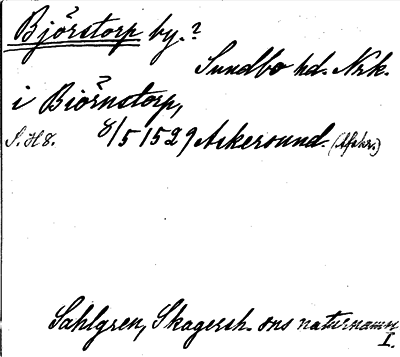 Björstorp by.?
Sundbo hd. Nrk.
i Biörnstorp,
S. H 8. 8/5 1529 Askersund. (Afskr.)
Sahlgren, Skagersh. sns naturnamn
I.